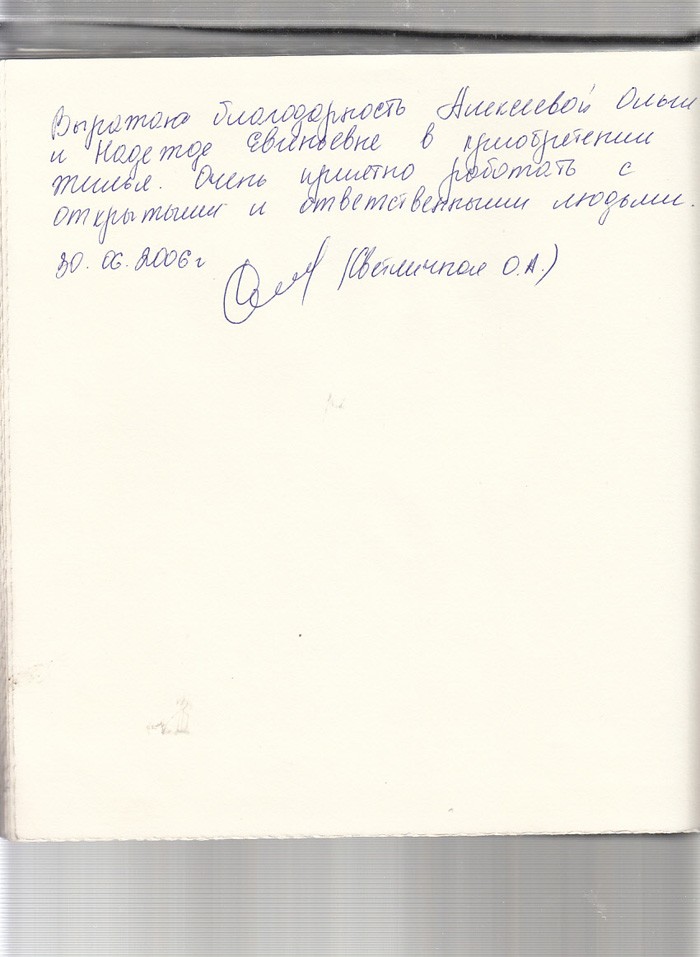 Выражаю благодарность Алексеевой Ольги
и Надежде Евгеньевне в приобретении
жилья. Очень приятно работать с
открытыми и ответственными людьми.
30.06.2006г (Светличная О.А.)